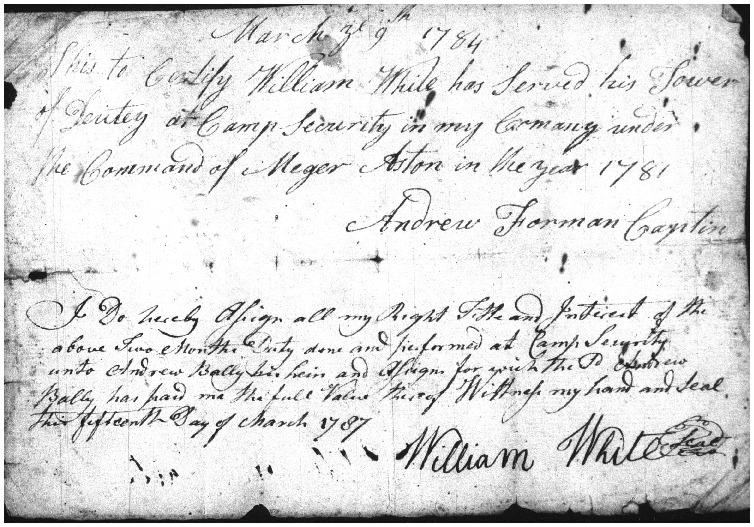 March ye 9th 1784
This to Certify William White has Served his Tower
of Deutey at Camp Security in my Comany under
the Command of Meger Aston in the year 1781
Andrew Forman Captin
I Do hereby Assign all my Right Title and Interest of the
above Two Months Duty done and performed at Camp Security
unto Andrew Bally his heirs and Assigns for which the Sd Andrew
Bally has paid me the full Value thereof Wittness my hand and Seal
this fifteenth Day of March 1787
William White Seal